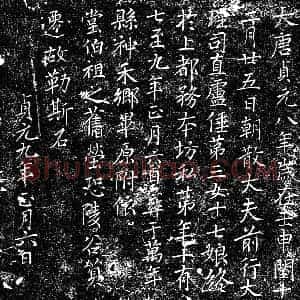 大唐貞元八年歲在壬申閏十
二月廿五日朝散大夫前行大
理司直盧倕第三女十七娘終
於上都務本坊之第年十有
七至九年正月六日葬于萬年
縣神禾鄉畢原附
堂伯祖之舊塋恐陵谷貿
遷故勒斯石
貞元九年正月六日
shufazidian.com